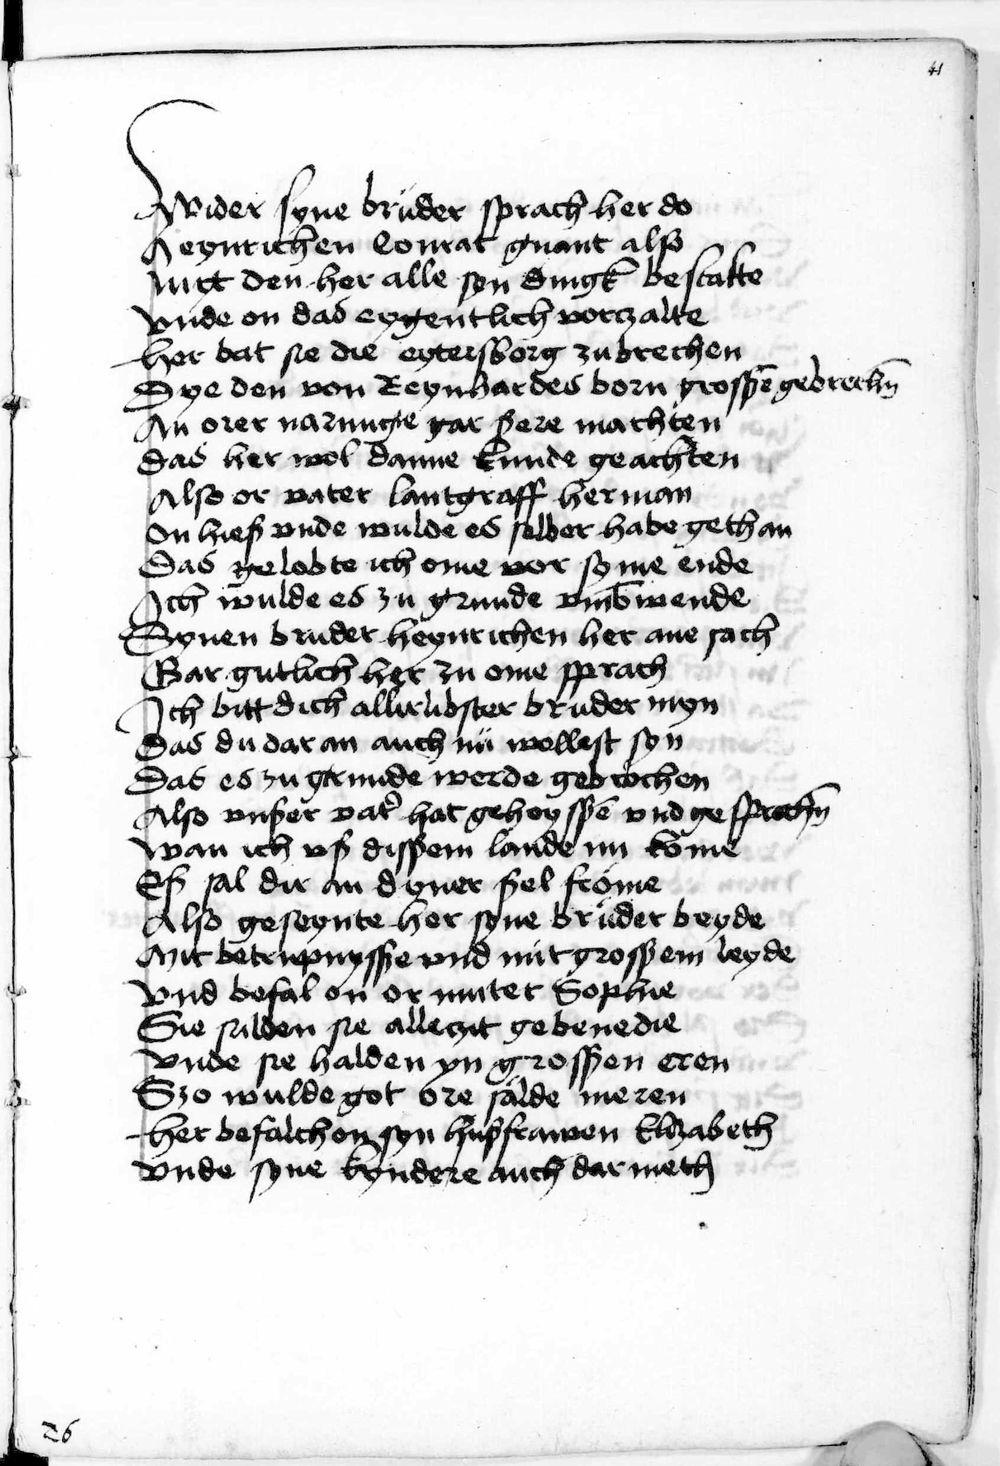 41
Wider syne brüder sprach her do
Heynrichen Conrat gnant also
Mitt den her alle syn dingk bestalte
Vnde on das eygentlich vorzalte
her bat sie die eytersborg zubrechen
Dye den von Reynhardes born grossē gebrechn̄
An orer narunge gar sere machten
das her wol danne kunde geachten
Also or vater lantgraff herman
On hieß vnde wulde es selber habe gethan
Das gelobte ich ome vor syme ende
Ich wulde es zu grunde vmbwende
Synen bruder heynrichen her ane sach
Gar gutlich her zu ome sprach
Ich bitt dich allirlibster bruder myn
Das du dar an auch nü wollest syn
Das es zu grunde werde gebrochen
Also vnßer vatr̄ hat geheyssē vnd gesprochn̄
Wan ich vß dißem lande nu kome
Eß sal dir an dyner sel frome
Also geseynte her syne brüder beyde
Mit betrupnysse vnd mit grossem leyde
Vnd befal on or muter Sophie
Sie sulden sie alleczit gebenedie
Vnde sie halden yn grossen eren
Szo wulde got ore sälde meren
her befalch on syn hußfrawen Elizabeth
Vnde syne kyndere auch dar meth
26